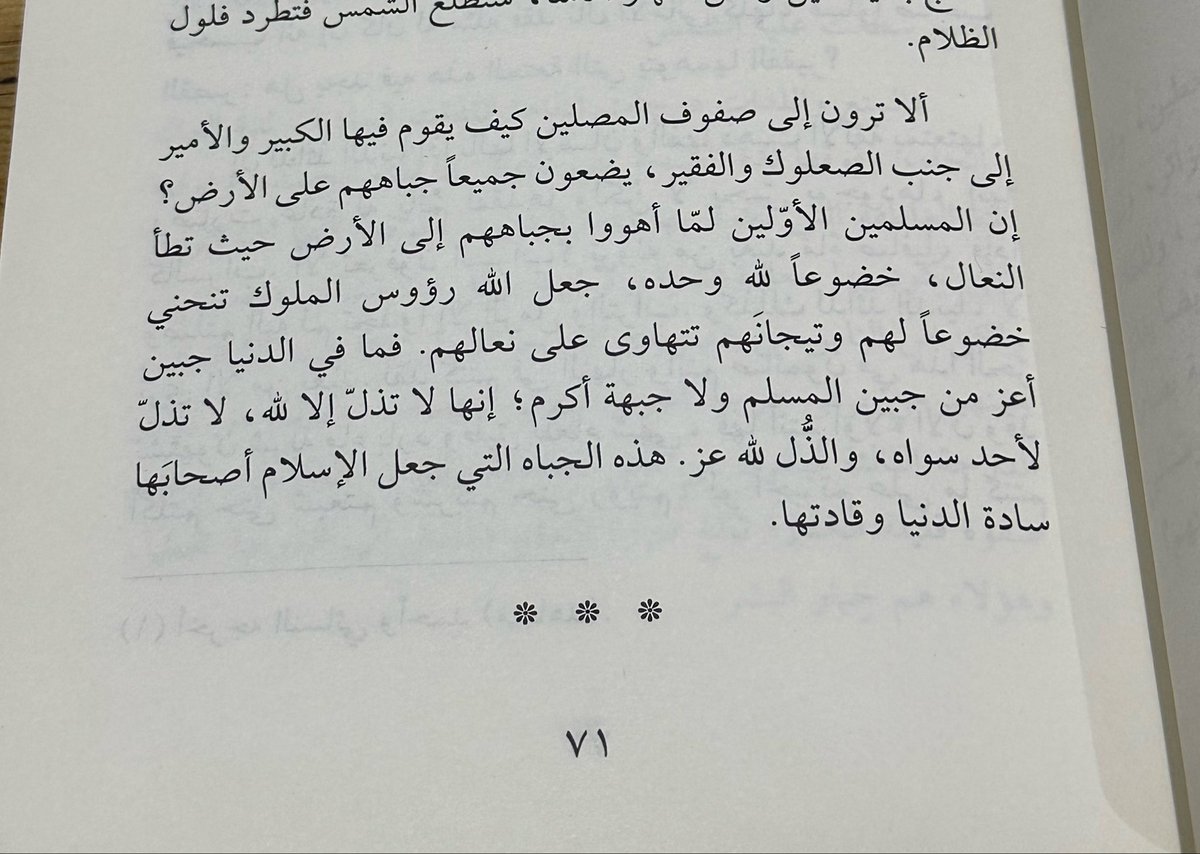 الشمس فتطرد فلول
الظلام.
ألا ترون إلى صفوف المصلين كيف يقوم فيها الكبير والأمير
إلى جنب الصعلوك والفقير، يضعون جميعاً جباههم على الأرض؟
إن المسلمين الأوّلين لمّا أهووا بجباههم إلى الأرض حيث تطأ
النعال، خضوعاً لله وحده، جعل الله رؤوس الملوك تنحني
خضوعاً لهم وتيجانَهم تتهاوى على نعالهم. فما في الدنيا جبين
أعز من جبين المسلم ولا جبهة أكرم؛ إنها لا تذلّ إلا لله، لا تذلّ
لأحد سواه، والذُّل لله عز. هذه الجباه التي جعل الإسلام أصحابَها
سادة الدنيا وقادتها.
* * *
٧١